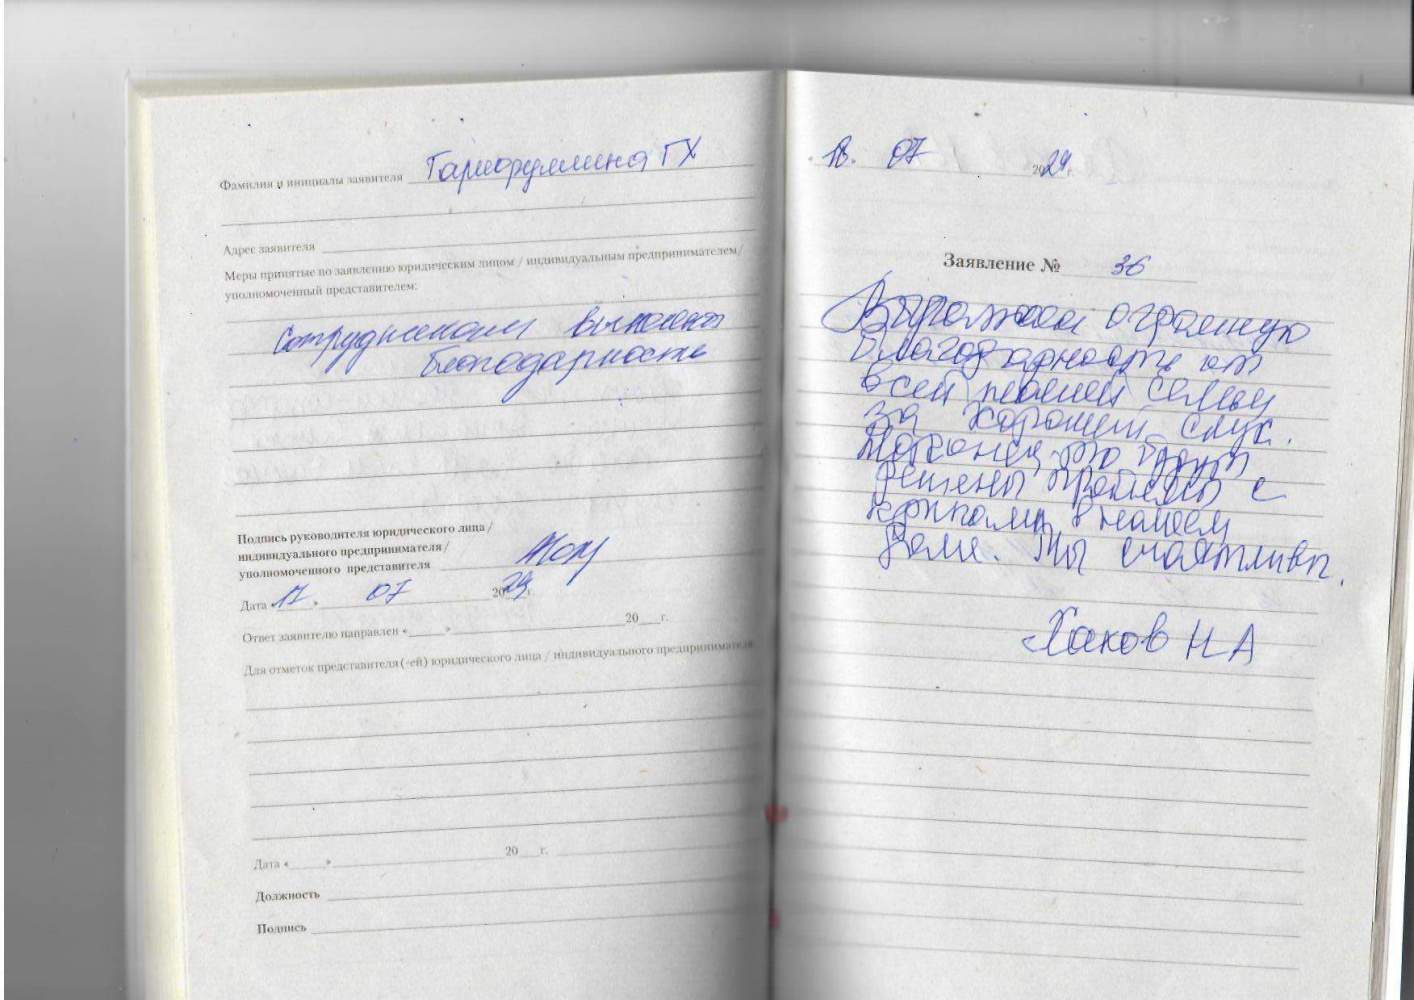 Фамилия и инициалы заявителя Гариффуллина ГХ
Адрес заявителя
Меры принятые по заявлению юридическим лицом / индивидуальным предпринимателем/
уполномоченный представителем:
Сотрудникам вынесена
благодарность
Подпись руководителя юридического лица /
индивидуального предпринимателя /
уполномоченного представителя
Дата «17» 07 2024г.
Ответ заявителю направлен «____» 20___г.
Для отметок представителя (-ей) юридического лица / индивидуального предпринимателя
Дата «____» 20___г.
Должность
Подпись
18. 07 2024г.
Заявление № 36
Выражаем огромную
благодарность от
всей нашей семьи
за хороший слух.
Наконец то будут
решены проблемы с
в нашем
доме. Мы счастливы.
Хаков Н А